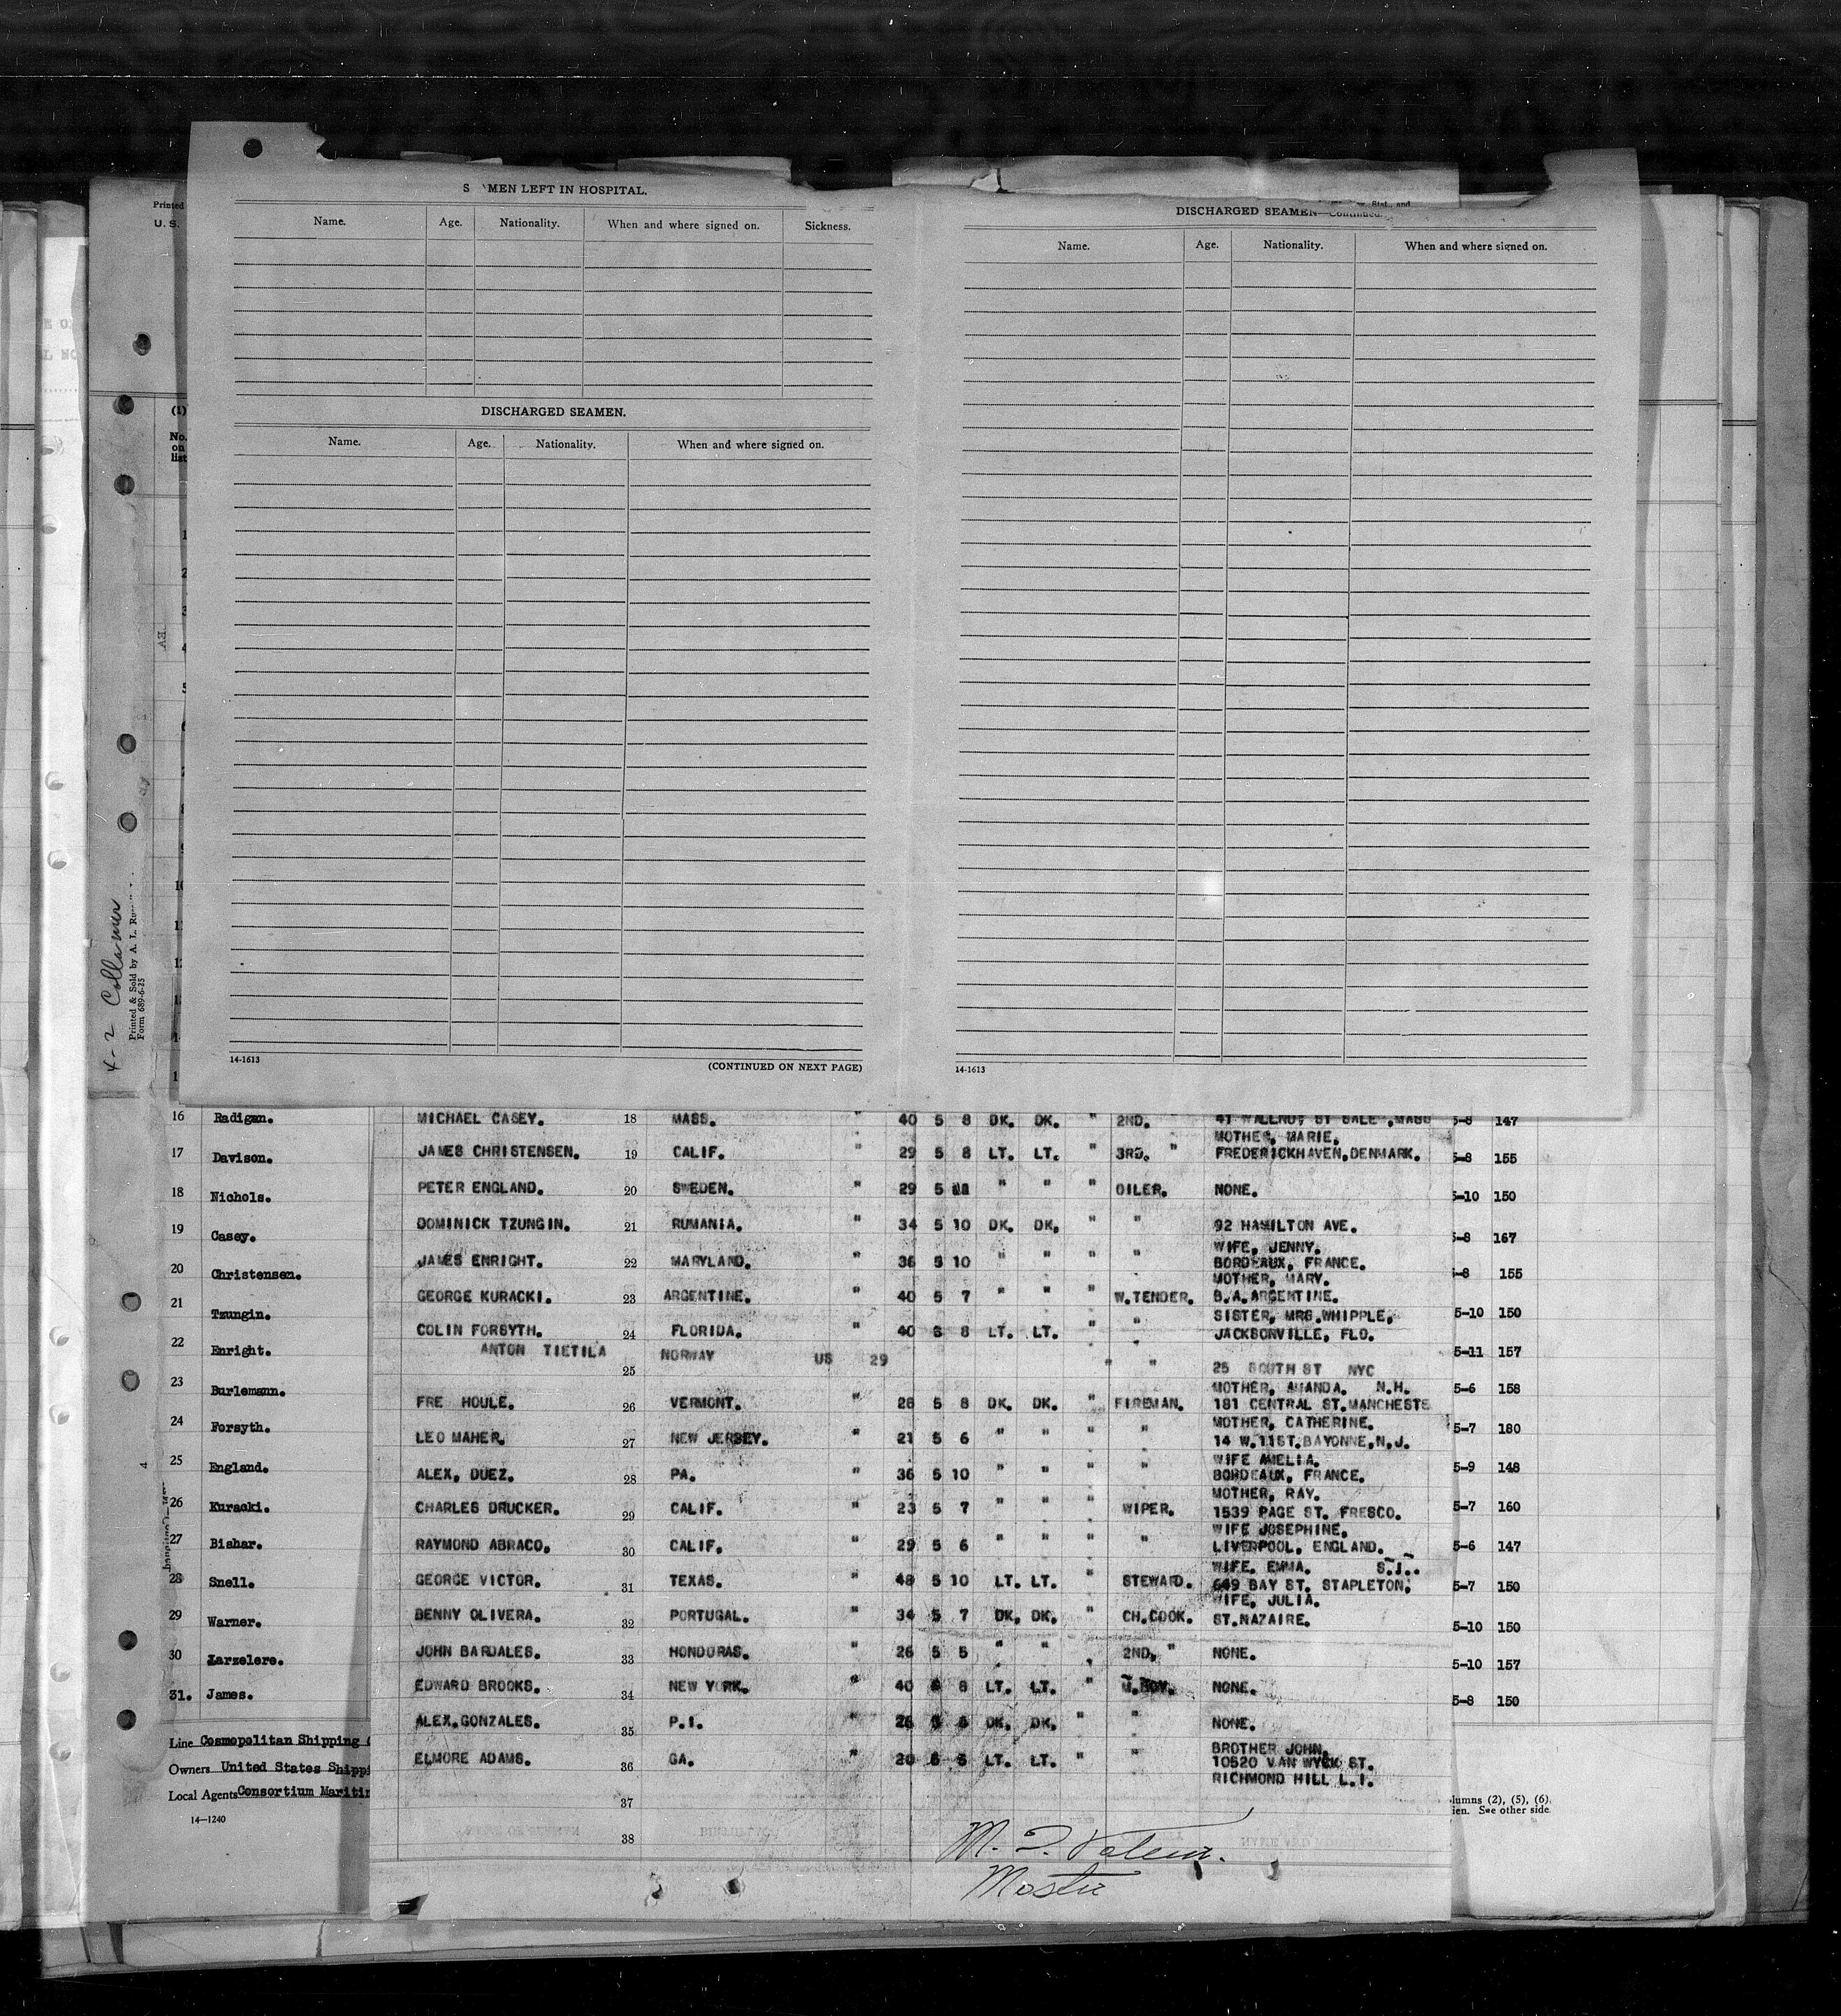 Printed
U. S.
(1)
No.
on
list
MEN LEFT IN HOSPITAL.
Name. Age. Nationality. When and where signed on. Sickness.
DISCHARGED SEAMEN.
Name. Age. Nationality. When and where signed on.
14-1613 (CONTINUED ON NEXT PAGE)
DISCHARGED SEAMEN—Continued.
Name. Age. Nationality. When and where signed on.
14-1613
4-2 Collamer
Printed & Sold by A. L.
Form 689-6-25
16 Radigan.
17 Davison.
18 Nichols.
19 Casey.
20 Christensen.
21 Tzungin.
22 Enright.
23 Burlemann.
24 Forsyth.
25 England.
26 Kuracki.
27 Bishar.
28 Snell.
29 Warner.
30 Larzelere.
31. James.
Line Cosmopolitan Shipping
Owners United States Shippi
Local Agents Consortium Mariti
14—1240
MICHAEL CASEY. 18 MASS. " 40 5 8 DK. DK. " 2ND.
MOTHER, MARIE.
JAMES CHRISTENSEN. 19 CALIF. " 29 5 8 LT. LT. " 3RD. " FREDERICKHAVEN,DENMARK.
PETER ENGLAND. 20 SWEDEN. " 29 5 " " " OILER. NONE.
DOMINICK TZUNGIN. 21 RUMANIA. " 34 5 10 DK. DK. " " 92 HAMILTON AVE.
WIFE, JENNY.
JAMES ENRIGHT. 22 MARYLAND. " 36 5 10 " " " " BORDEAUX, FRANCE.
MOTHER, MARY.
GEORGE KURACKI. 23 ARGENTINE. " 40 5 7 " " " W.TENDER. B.A.ARGENTINE.
SISTER, MRS.WHIPPLE,
COLIN FORSYTH. 24 FLORIDA. " 40 8 LT. LT. " " JACKSONVILLE, FLO.
ANTON TIETILA 25 NORWAY US 29 " " 25 SOUTH ST NYC
MOTHER, AMANDA. N.H.
FRE HOULE. 26 VERMONT. " 28 5 8 DK. DK. " FIREMAN. 181 CENTRAL ST.MANCHESTE
MOTHER, CATHERINE.
LEO MAHER. 27 NEW JERSEY. " 21 5 6 " " " " 14 W.11ST.BAYONNE,N.J.
WIFE AMELIA.
ALEX, DUEZ. 28 PA. " 36 5 10 " " " " BORDEAUX, FRANCE.
MOTHER, RAY.
CHARLES DRUCKER. 29 CALIF. " 23 5 7 " " " WIPER. 1539 PAGE ST. FRESCO.
WIFE JOSEPHINE.
RAYMOND ABRACO. 30 CALIF. " 29 5 6 " " " " LIVERPOOL, ENGLAND.
WIFE. EMMA. S.I..
GEORGE VICTOR. 31 TEXAS. " 48 5 10 LT. LT. " STEWARD. 649 BAY ST. STAPLETON,
WIFE, JULIA.
BENNY OLIVERA. 32 PORTUGAL. " 34 5 7 DK. DK. " CH.COOK. ST.NAZAIRE.
JOHN BARDALES. 33 HONDURAS. " 26 5 5 " " " 2ND. " NONE.
EDWARD BROOKS. 34 NEW YORK. " 40 8 LT. LT. " M.BOY. NONE.
ALEX.GONZALES. 35 P.I. " 26 DK. DK. " " NONE.
BROTHER JOHN,
ELMORE ADAMS. 36 GA. " 20 LT. LT. " " 10520 VAN WYCK ST.
RICHMOND HILL L.I.
37
38
Master
5-8 147
5-8 155
5-10 150
5-8 167
5-8 155
5-10 150
5-11 157
5-6 158
5-7 180
5-9 148
5-7 160
5-6 147
5-7 150
5-10 150
5-10 157
5-8 150
lumns (2), (5), (6).
ien. See other side.